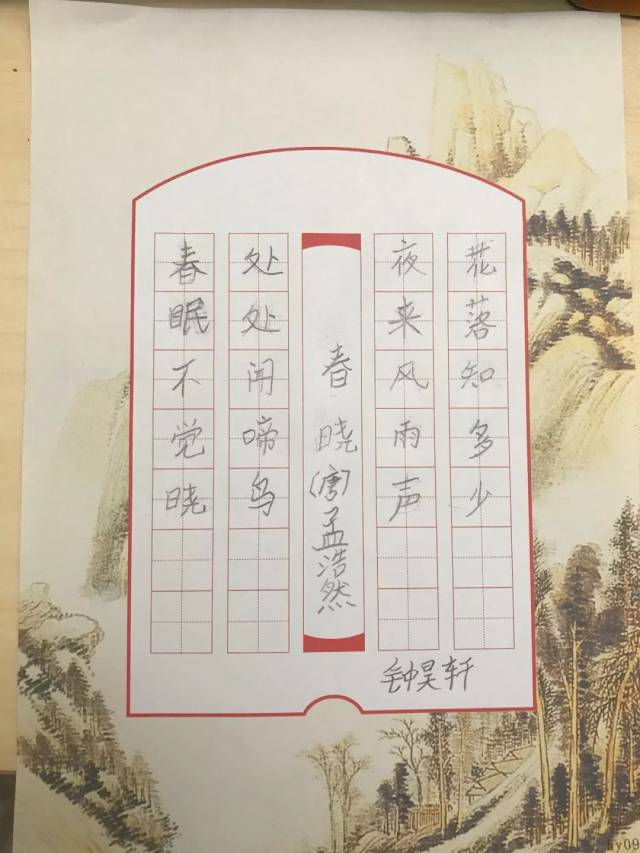 春眠不觉晓
处处闻啼鸟
春晓(唐)孟浩然
夜来风雨声
花落知多少
钟昊轩
hy09